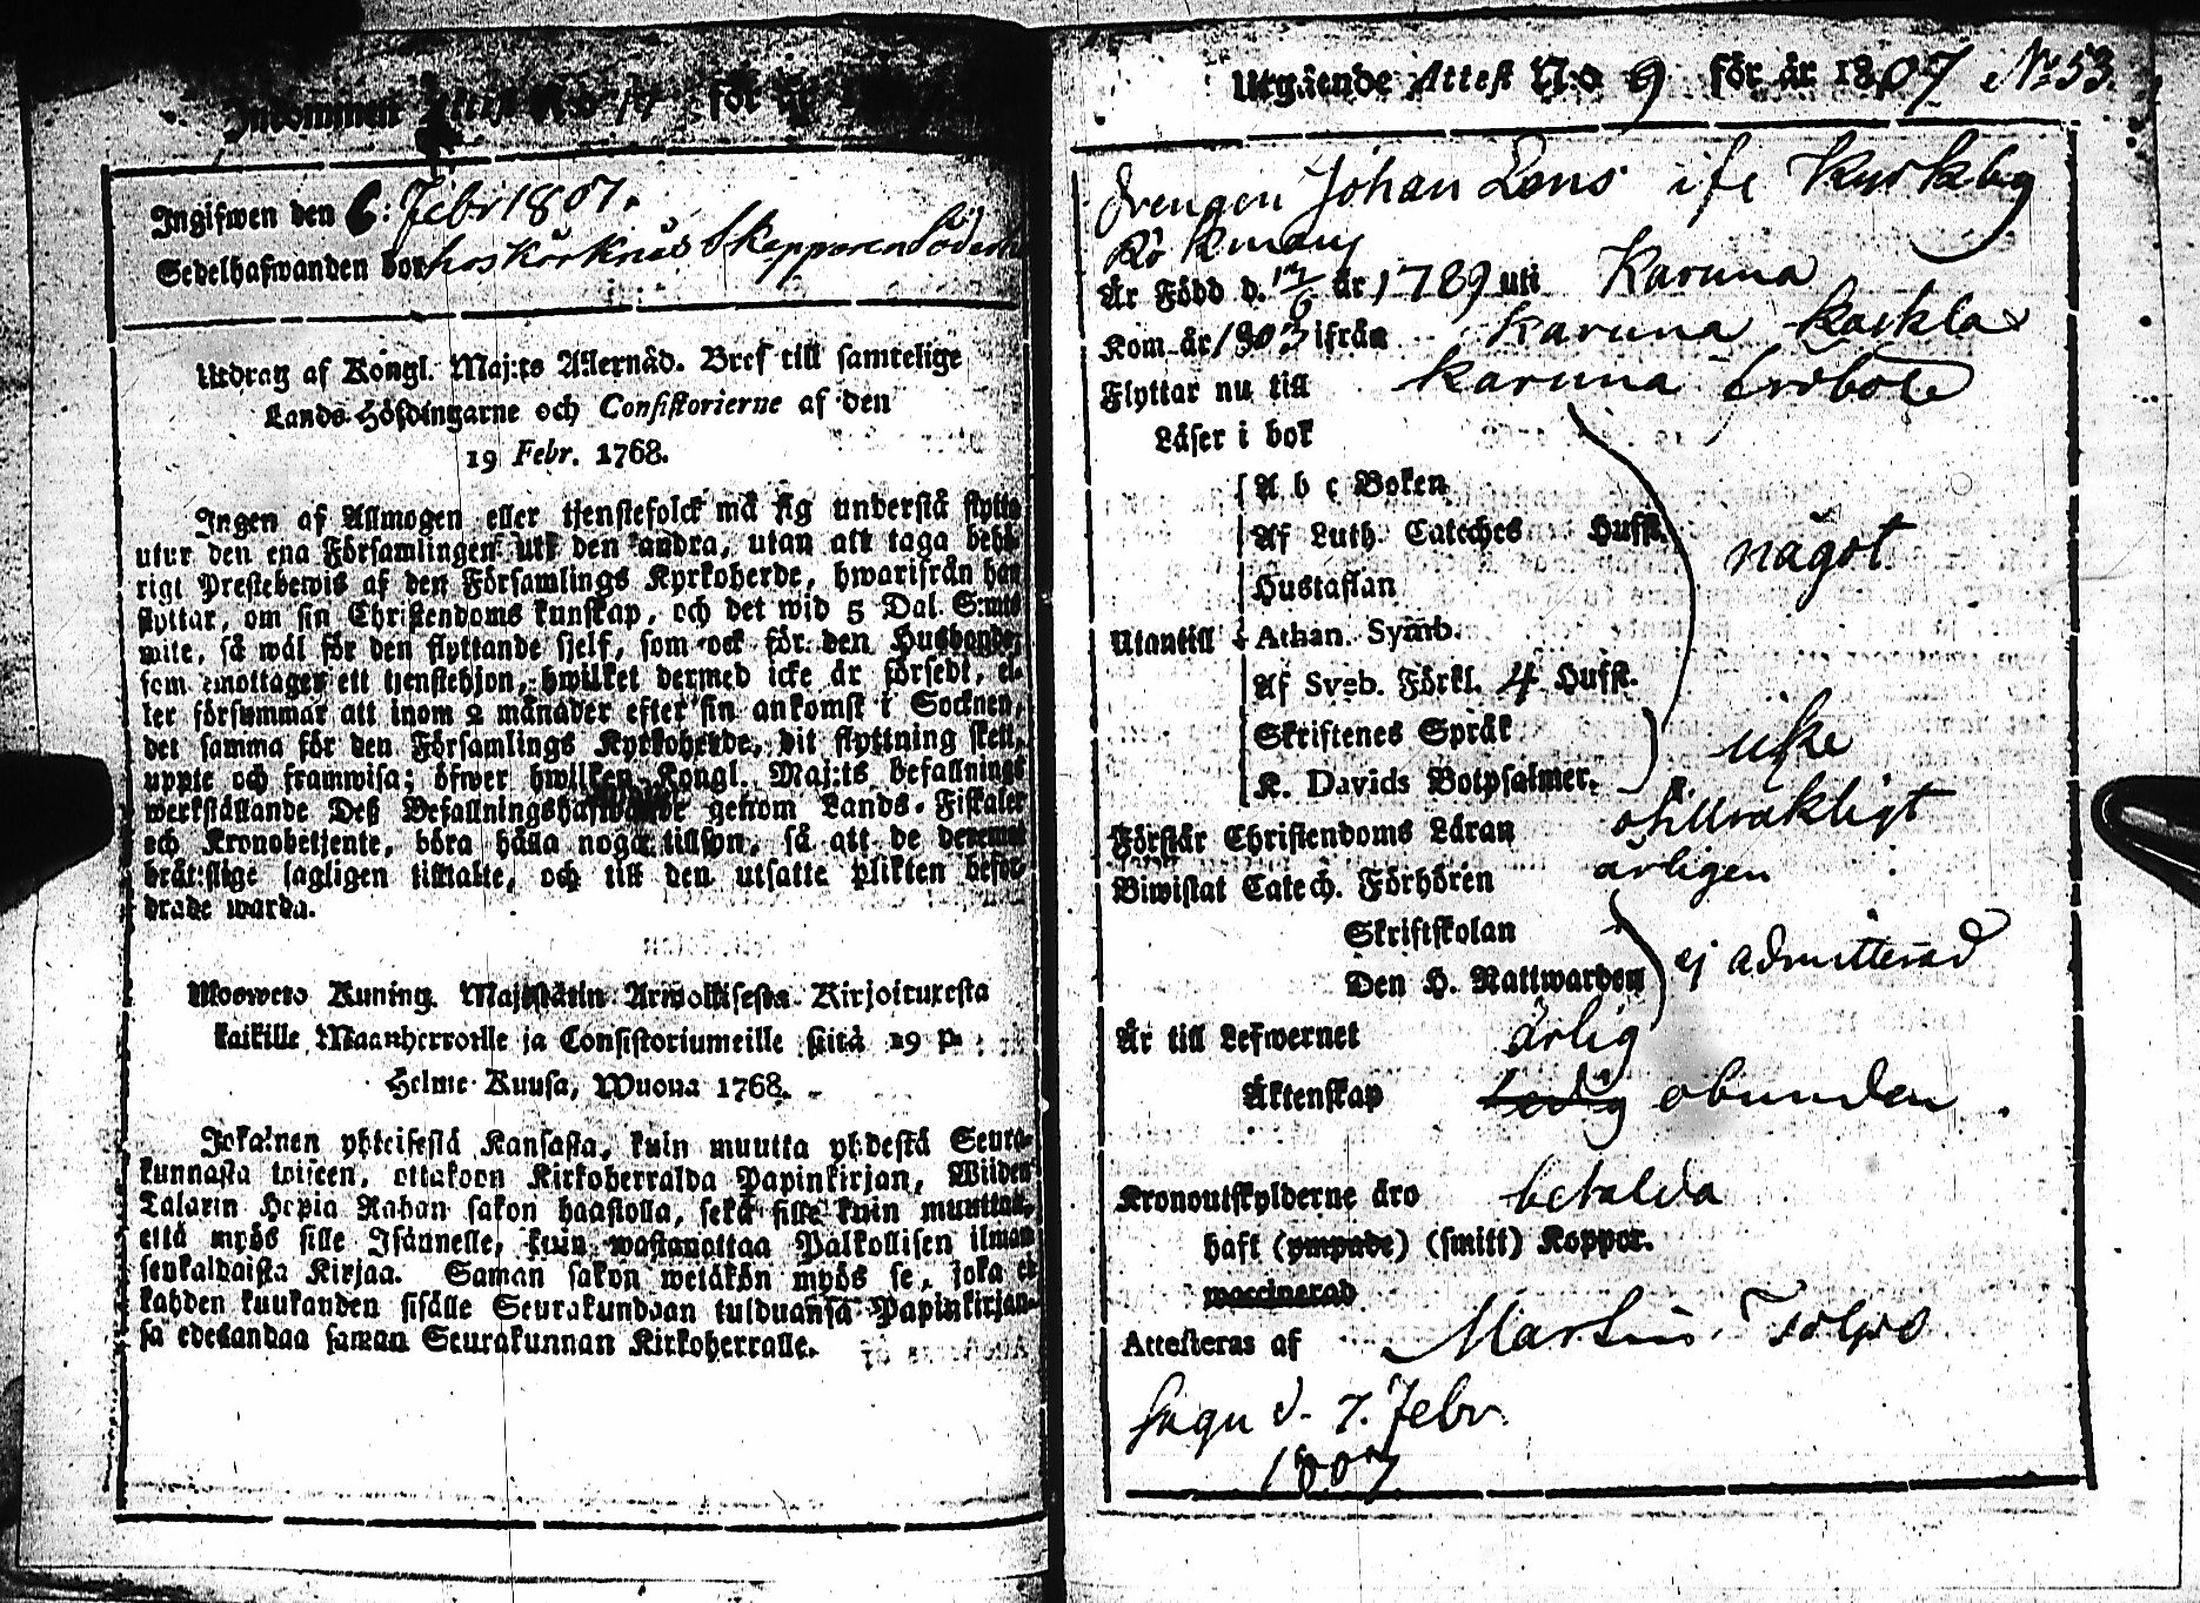 Inkommen Attest No för år
Ingifwen den 6: Febr 1807.
Sedelhafwanden bor hos Skepparen
Utdrag af Kongl. Maj:ts Allernåd. Bref till samtelige
Lands-Höfdingarne och Consistorierne af den
19 Febr. 1768.
Ingen af Allmogen eller tjenstefolck må sig understå flytta
utur den ena Församlingen uti den andra, utan att taga behö-
rigt Prestebewis af den Församlings Kyrkoherde, hwarifrån han
flyttar, om sin Christendoms kunskap, och det wid 5 Dal. S:mts
wite, så wäl för den flyttande sjelf, som ock för den Husbonde,
som emottager ett tjenstehjon, hwilket dermed icke är försedt, el-
ler försummar att inom 2 månader efter sin ankomst i Socknen,
det samma för den Församlings Kyrkoherde, dit flyttning skett,
uppte och framwisa; öfwer hwilken Kongl. Maj:ts befallnings
werkställande Deß Befallningshafwande genom Lands-Fiskaler
och Kronobetjente, böra hålla noga tillsyn, så att de deremot
brätslige lagligen tilltalte, och till den utsatte plikten befor-
drade warda.
Mosweto Kuning. Majestätin Armollisesta Kirjoituxesta
kaikille Maanherroille ja Consistoriumeille siitä 19 p.
Helme-Kuusa, Wuona 1768.
Jokainen yhteisestä Kansasta, kuin muutta yhdestä Seura-
kunnasta toiseen, ottakoon Kirkoherralda Papinkirjan, Wiiden
Talarin Hopia Rahan sakon haastolla, sekä sille kuin muuttaa,
että myös sille Isännelle, kuin wastanottaa Palkollisen ilman
senkaldaista Kirjaa. Saman sakon wetäkön myös se, joka ei
kahden kuukauden sisälle Seurakundaan tulduansa Papinkirjan-
sa edesandaa saman Seurakunnan Kirkoherralle.
Utgående Attest No 9 för år 1807 No 53.
Drengen Johan Lens ifr Kyrkby
Är Född d. 17/6 år 1789 uti Karuna
Kom år 1803 ifrån Karuna
Flyttar nu till Karuna
Läser i bok
A b c Boken
Af Luth. Cateches Hufst.
något
Hustaflan
Utantill Athan. Symb.
Af Sveb. Förkl. 4 Hufst.
Skriftenes Språk
icke
K. Davids Botpsalmer.
Förstår Christendoms Läran otillräkligt
Biwistat Catech. Förhören årligen
Skriftskolan
Den H. Nattwarden ej admitterad
Är till Lefwernet ärlig
Äktenskap ledig obunden.
Kronoutskylderne äro betalda
haft (ympade) (smitt) Koppor.
vaccinerad
Attesteras af Martin Tolpo
Sagu d. 7. Febr.
1807